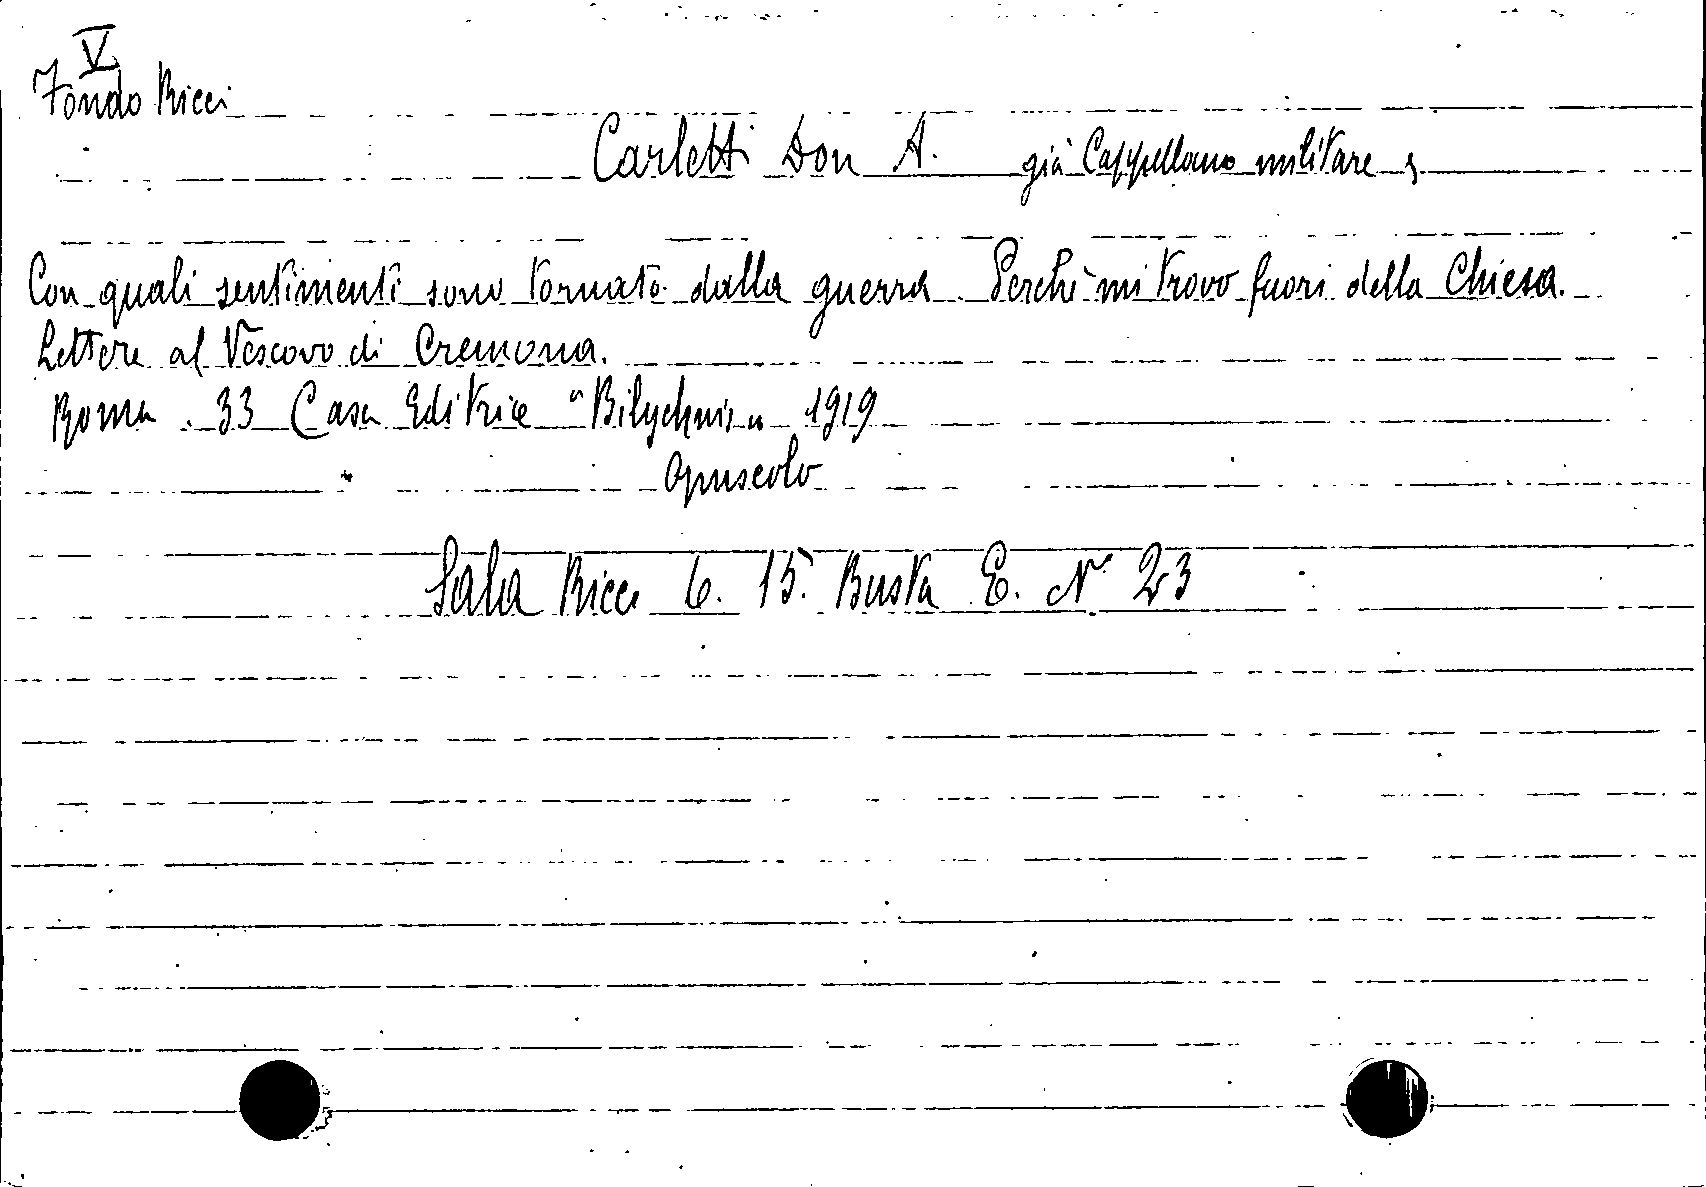 V
Fondo Ricci
Carletti Don A. già Cappellano militare
Con quali sentimenti sono tornato dalla guerra. Perchè mi trovo fuori della Chiesa.
Lettere al Vescovo di Cremona.
Roma. 33 Casa Editrice "Bilychnis" 1919
Opuscolo
Sala Ricci 6. 15. Busta E. N° 23